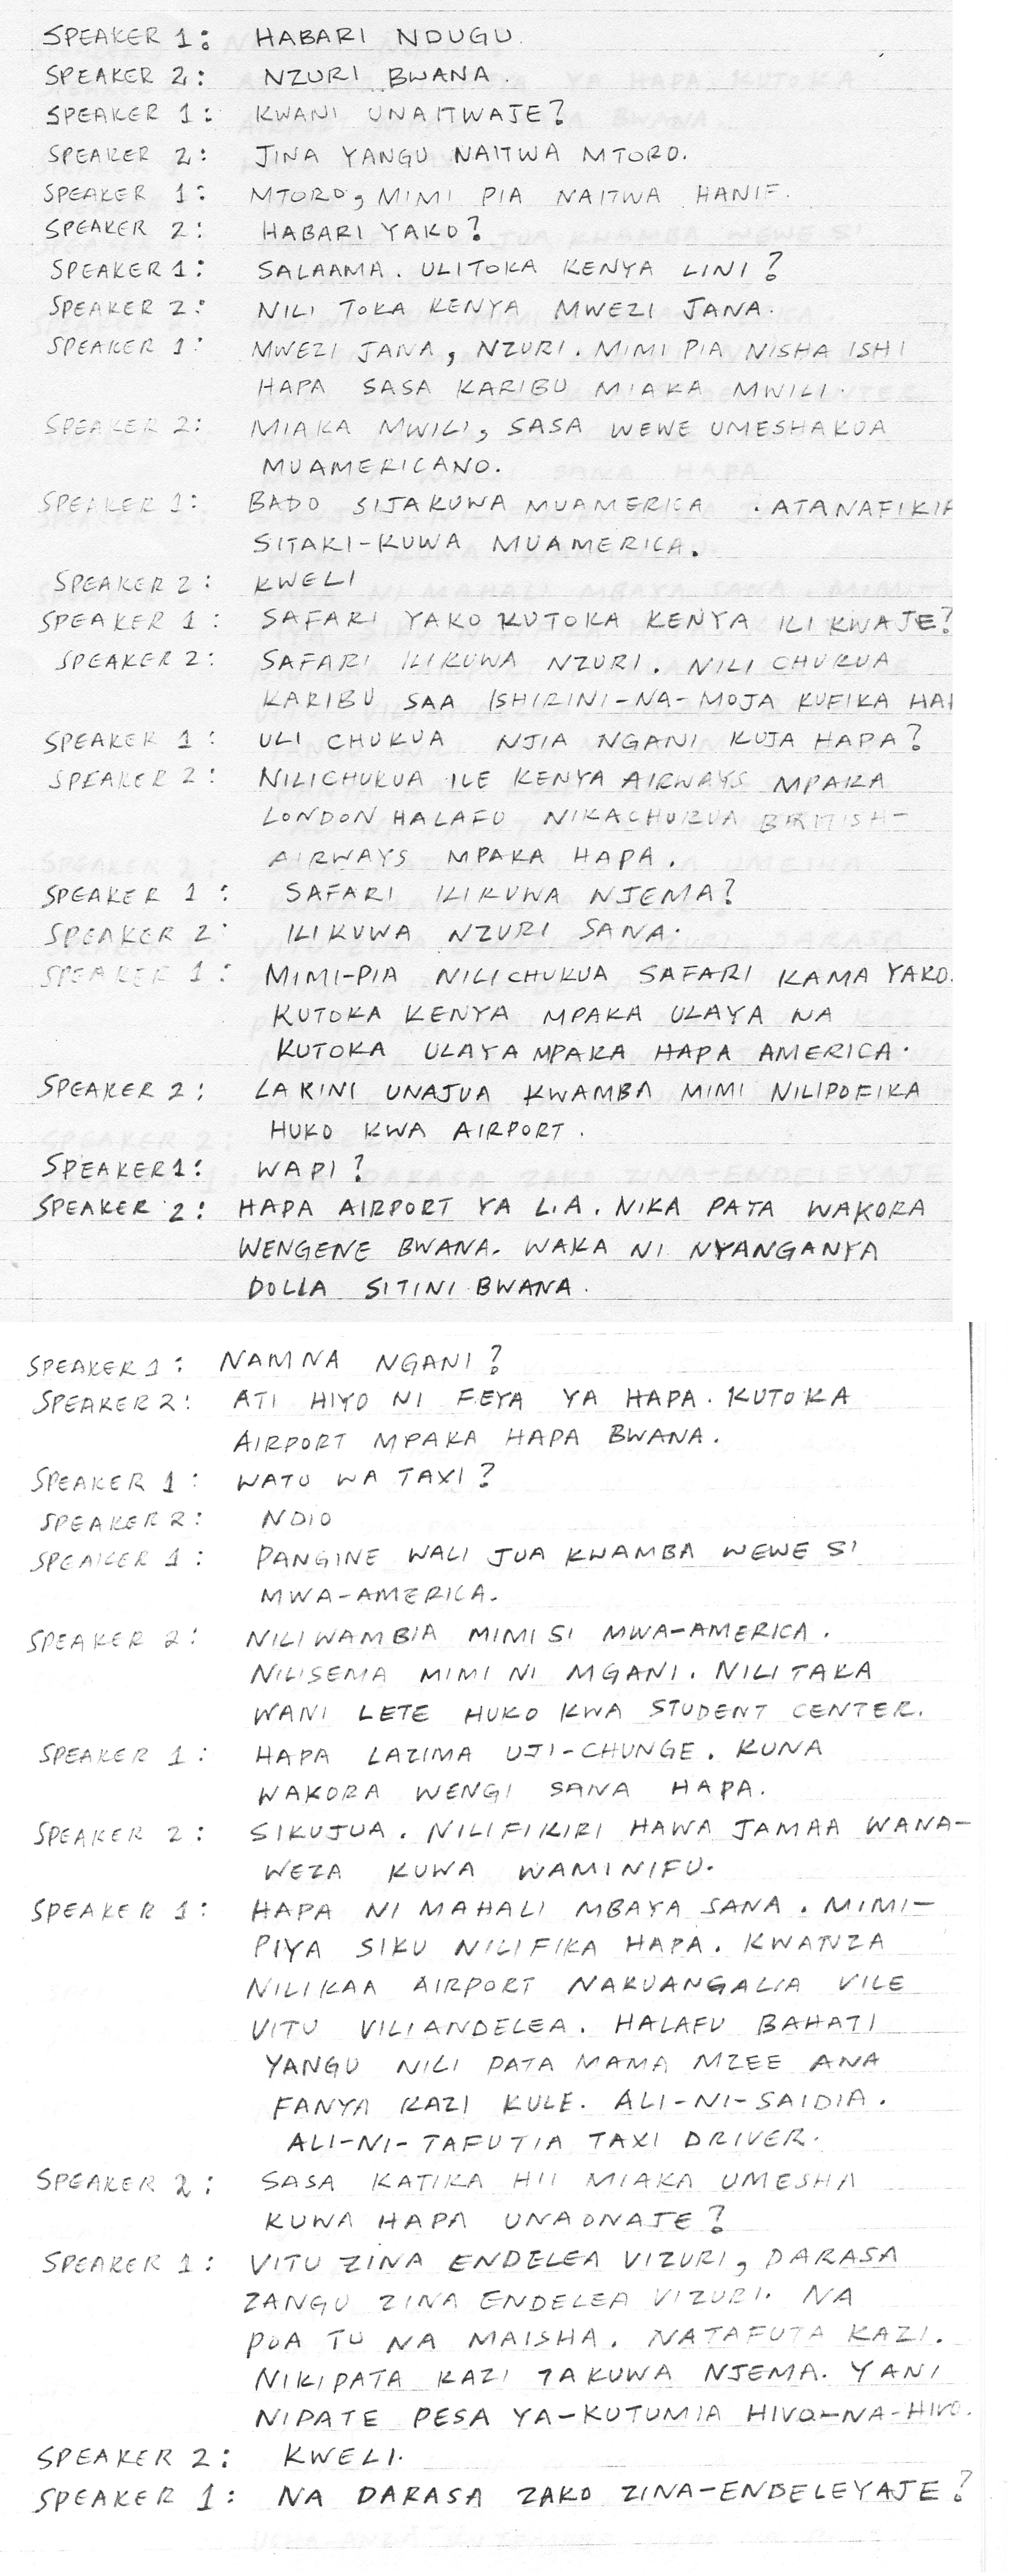 SPEAKER 1: HABARI NDUGU.
SPEAKER 2: NZURI BWANA.
SPEAKER 1: KWANI UNAITWAJE?
SPEAKER 2: JINA YANGU NAITWA MTORO.
SPEAKER 1: MTORO, MIMI PIA NAITWA HANIF.
SPEAKER 2: HABARI YAKO?
SPEAKER 1: SALAAMA. ULITOKA KENYA LINI?
SPEAKER 2: NILI TOKA KENYA MWEZI JANA.
SPEAKER 1: MWEZI JANA, NZURI. MIMI PIA NISHA ISHI
HAPA SASA KARIBU MIAKA MWILI.
SPEAKER 2: MIAKA MWILI, SASA WEWE UMESHAKUA
MUAMERICANO.
SPEAKER 1: BADO SIJAKUWA MUAMERICA. ATANAFIKIR
SITAKI-KUWA MUAMERICA.
SPEAKER 2: KWELI
SPEAKER 1: SAFARI YAKO KUTOKA KENYA ILI KWAJE?
SPEAKER 2: SAFARI ILIKUWA NZURI. NILI CHUKUA
KARIBU SAA ISHIRINI-NA-MOJA KUFIKA
SPEAKER 1: ULI CHUKUA NJIA NGANI KUJA HAPA?
SPEAKER 2: NILICHUKUA ILE KENYA AIRWAYS MPAKA
LONDON HALAFU NIKACHUKUA BRITISH-
AIRWAYS MPAKA HAPA.
SPEAKER 1: SAFARI ILIKUWA NJEMA?
SPEAKER 2: ILIKUWA NZURI SANA.
SPEAKER 1: MIMI-PIA NILICHUKUA SAFARI KAMA YAKO.
KUTOKA KENYA MPAKA ULAYA NA
KUTOKA ULAYA MPAKA HAPA AMERICA.
SPEAKER 2: LAKINI UNAJUA KWAMBA MIMI NILIPOFIKA
HUKO KWA AIRPORT.
SPEAKER 1: WAPI?
SPEAKER 2: HAPA AIRPORT YA L.A. NIKA PATA WAKORA
WENGENE BWANA. WAKA NI NYANGANYA
DOLLA SITINI BWANA.
SPEAKER 1: NAMNA NGANI?
SPEAKER 2: ATI HIYO NI FEYA YA HAPA. KUTOKA
AIRPORT MPAKA HAPA BWANA.
SPEAKER 1: WATU WA TAXI?
SPEAKER 2: NDIO
SPEAKER 1: PANGINE WALI JUA KWAMBA WEWE SI
MWA-AMERICA.
SPEAKER 2: NILIWAMBIA MIMI SI MWA-AMERICA.
NILISEMA MIMI NI MGANI. NILITAKA
WANI LETE HUKO KWA STUDENT CENTER.
SPEAKER 1: HAPA LAZIMA UJI-CHUNGE. KUNA
WAKORA WENGI SANA HAPA.
SPEAKER 2: SIKUJUA. NILIFIKIRI HAWA JAMAA WANA-
WEZA KUWA WAMINIFU.
SPEAKER 1: HAPA NI MAHALI MBAYA SANA. MIMI-
PIYA SIKU NILIFIKA HAPA. KWANZA
NILIKAA AIRPORT NAKUANGALIA VILE
VITU VILIANDELEA. HALAFU BAHATI
YANGU NILI PATA MAMA MZEE ANA
FANYA KAZI KULE. ALI-NI-SAIDIA.
ALI-NI-TAFUTIA TAXI DRIVER.
SPEAKER 2: SASA KATIKA HII MIAKA UMESHA
KUWA HAPA UNAONAJE?
SPEAKER 1: VITU ZINA ENDELEA VIZURI, DARASA
ZANGU ZINA ENDELEA VIZURI. NA
POA TU NA MAISHA. NATAFUTA KAZI.
NIKIPATA KAZI TAKUWA NJEMA. YANI
NIPATE PESA YA-KUTUMIA HIVO-NA-HIVO.
SPEAKER 2: KWELI.
SPEAKER 1: NA DARASA ZAKO ZINA-ENDELEYAJE?